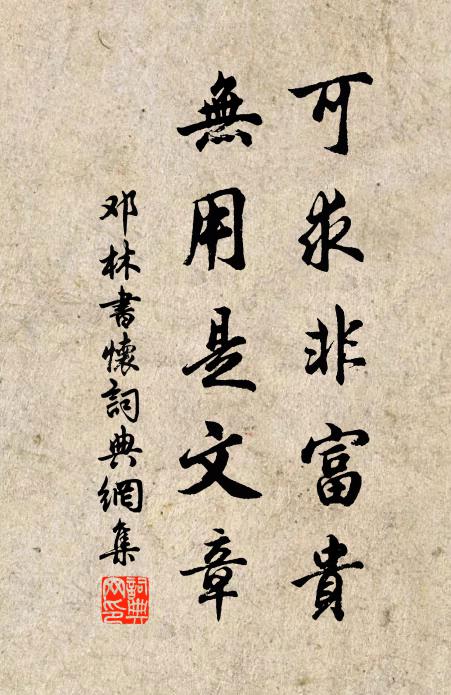 可求非富貴
無用是文章
邓林書懷詞典網集
詞典網印